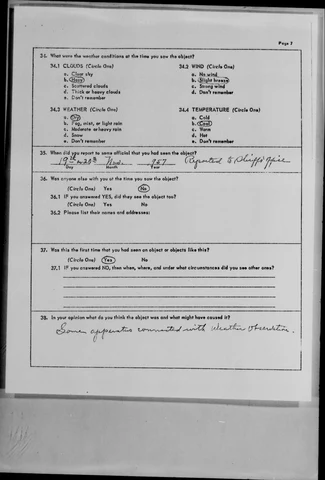 Page 7
34. What were the weather conditions at the time you saw the object?
34.1 CLOUDS (Circle One) 34.2 WIND (Circle One)
a. Clear sky a. No wind
b. Hazy b. Slight breeze
c. Scattered clouds c. Strong wind
d. Thick or heavy clouds d. Don't remember
e. Don't remember
34.3 WEATHER (Circle One) 34.4 TEMPERATURE (Circle One)
a. Dry a. Cold
b. Fog, mist, or light rain b. Cool
c. Moderate or heavy rain c. Warm
d. Snow d. Hot
e. Don't remember e. Don't remember
35. When did you report to some official that you had seen the object?
19th or 20th Nov. 957 Reported to Sheriff's office
Day Month Year
36. Was anyone else with you at the time you saw the object?
(Circle One) Yes No
36.1 IF you answered YES, did they see the object too?
(Circle One) Yes No
36.2 Please list their names and addresses:
37. Was this the first time that you had seen an object or objects like this?
(Circle One) Yes No
37.1 IF you answered NO, then when, where, and under what circumstances did you see other ones?
38. In your opinion what do you think the object was and what might have caused it?
Some apparatus connected with Weather Observation.